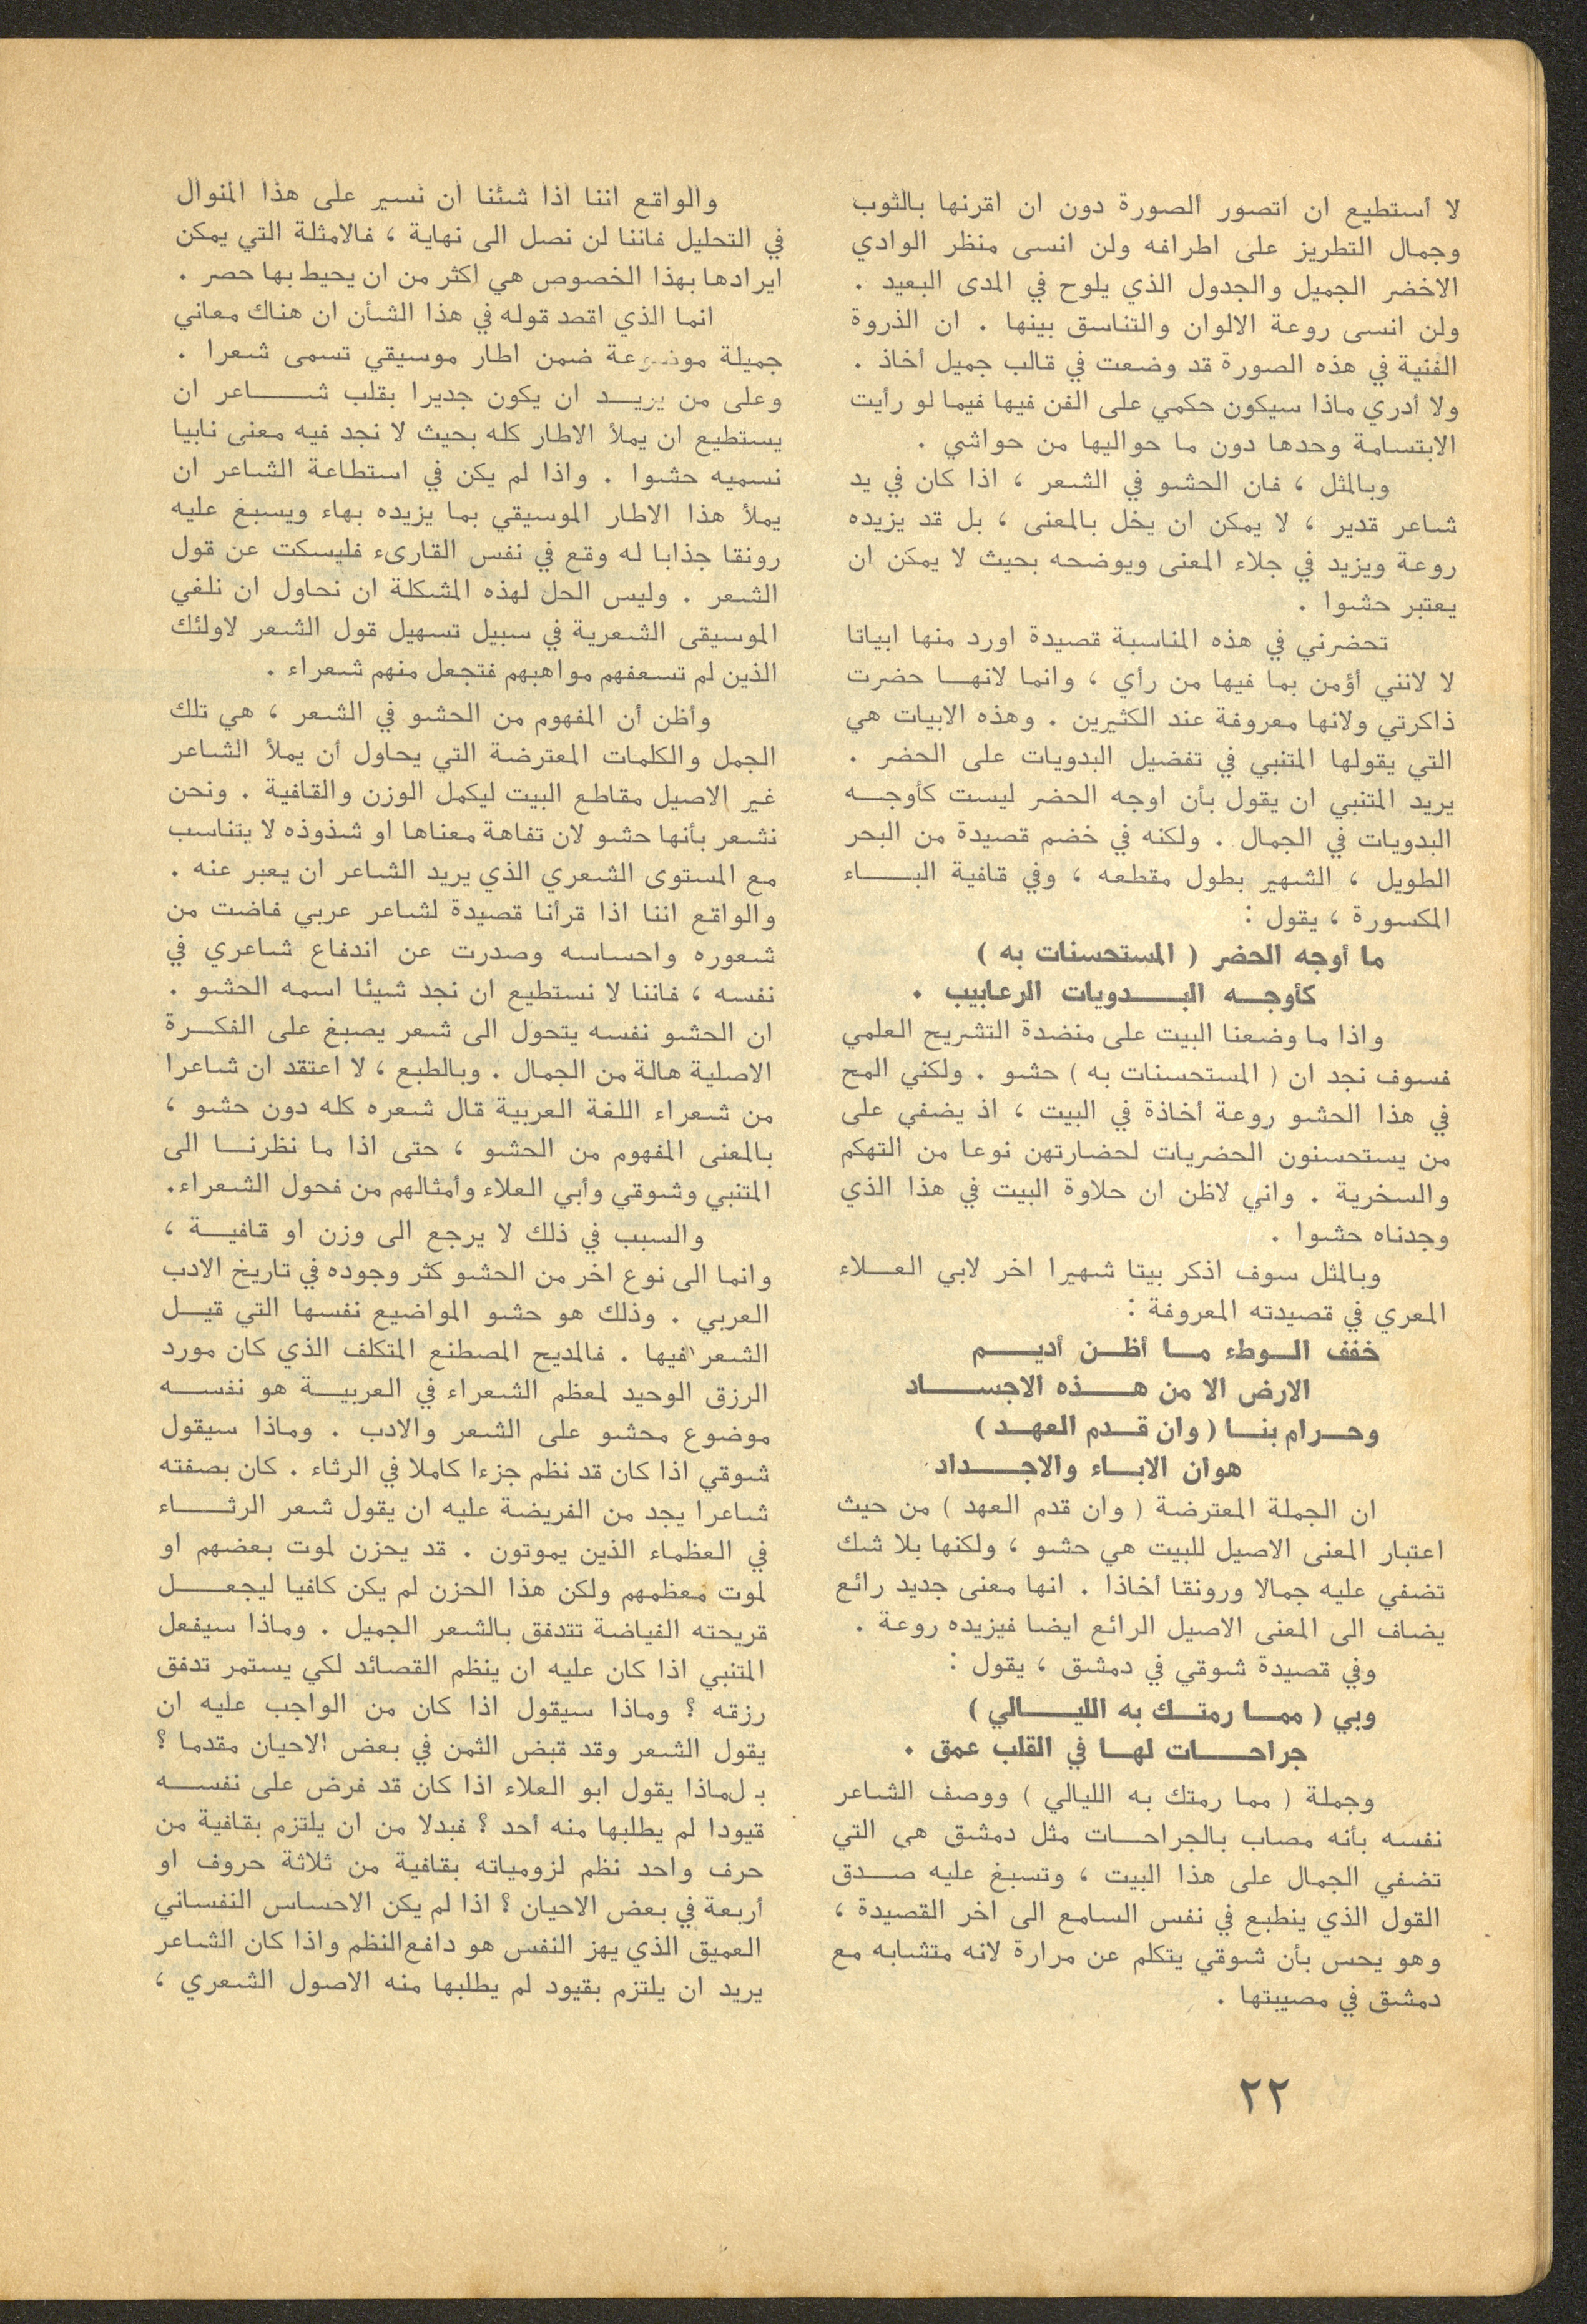 لا أستطيع ان اتصور الصورة دون ان اقرنها بالثوب
وجمال التطريز على اطرافه ولن انسى منظر الوادي
الاخضر الجميل والجدول الذي يلوح في المدى البعيد .
ولن انسى روعة الالوان والتناسق بينها . ان الذروة
الفنية في هذه الصورة قد وضعت في قالب جميل أخاذ .
ولا أدري ماذا سيكون حكمي على الفن فيها فيما لو رأيت
الابتسامة وحدها دون ما حواليها من حواشي .
وبالمثل ، فان الحشو في الشعر ، اذا كان في يد
شاعر قدير ، لا يمكن ان يخل بالمعنى ، بل قد يزيده
روعة ويزيد في جلاء المعنى ويوضحه بحيث لا يمكن ان
يعتبر حشوا .
تحضرني في هذه المناسبة قصيدة اورد منها ابياتا
لا لانني أؤمن بما فيها من رأي ، وانما لانهـــا حضرت
ذاكرتي ولانها معروفة عند الكثيرين . وهذه الابيات هي
التي يقولها المتنبي في تفضيل البدويات على الحضر .
يريد المتنبي ان يقول بأن اوجه الحضر ليست كأوجـــه
البدويات في الجمال . ولكنه في خضم قصيدة من البحر
الطويل ، الشهير بطول مقطعه ، وفي قافية البـــاء
المكسورة ، يقول :
ما أوجه الحضر ( المستحسنات به )
كأوجــه البـــدويات الرعابيب .
واذا ما وضعنا البيت على منضدة التشريح العلمي
فسوف نجد ان ( المستحسنات به ) حشو . ولكني المح
في هذا الحشو روعة أخاذة في البيت ، اذ يضفي على
من يستحسنون الحضريات لحضارتهن نوعا من التهكم
والسخرية . واني لاظن ان حلاوة البيت في هذا الذي
وجدناه حشوا .
وبالمثل سوف اذكر بيتا شهيرا اخر لابي العـــلاء
المعري في قصيدته المعروفة :
خفف الــوطء مــا أظــن أديـــم
الارض الا من هـــذه الاجســـاد
وحــرام بنــا ( وان قــدم العهــد )
هوان الابــاء والاجـــداد
ان الجملة المعترضة ( وان قدم العهد ) من حيث
اعتبار المعنى الاصيل للبيت هي حشو ، ولكنها بلا شك
تضفي عليه جمالا ورونقا أخاذا . انها معنى جديد رائع
يضاف الى المعنى الاصيل الرائع ايضا فيزيده روعة .
وفي قصيدة شوقي في دمشق ، يقول :
وبي ( ممــا رمتــك به الليـــالي )
جراحـــات لهــا في القلب عمق .
وجملة ( مما رمتك به الليالي ) ووصف الشاعر
نفسه بأنه مصاب بالجراحـــات مثل دمشق هي التي
تضفي الجمال على هذا البيت ، وتسبغ عليه صـــدق
القول الذي ينطبع في نفس السامع الى اخر القصيدة ،
وهو يحس بأن شوقي يتكلم عن مرارة لانه متشابه مع
دمشق في مصيبتها .
والواقع اننا اذا شئنا ان نسير على هذا المنوال
في التحليل فاننا لن نصل الى نهاية ، فالامثلة التي يمكن
ايرادها بهذا الخصوص هي اكثر من ان يحيط بها حصر .
انما الذي اقصد قوله في هذا الشأن ان هناك معاني
جميلة موضوعة ضمن اطار موسيقي تسمى شعرا .
وعلى من يريـــد ان يكون جديرا بقلب شـــاعر ان
يستطيع ان يملأ الاطار كله بحيث لا نجد فيه معنى نابيا
نسميه حشوا . واذا لم يكن في استطاعة الشاعر ان
يملأ هذا الاطار الموسيقي بما يزيده بهاء ويسبغ عليه
رونقا جذابا له وقع في نفس القارىء فليسكت عن قول
الشعر . وليس الحل لهذه المشكلة ان نحاول ان نلغي
الموسيقى الشعرية في سبيل تسهيل قول الشعر لاولئك
الذين لم تسعفهم مواهبهم فتجعل منهم شعراء .
وأظن أن المفهوم من الحشو في الشعر ، هي تلك
الجمل والكلمات المعترضة التي يحاول أن يملأ الشاعر
غير الاصيل مقاطع البيت ليكمل الوزن والقافية . ونحن
نشعر بأنها حشو لان تفاهة معناها او شذوذه لا يتناسب
مع المستوى الشعري الذي يريد الشاعر ان يعبر عنه .
والواقع اننا اذا قرأنا قصيدة لشاعر عربي فاضت من
شعوره واحساسه وصدرت عن اندفاع شاعري في
نفسه ، فاننا لا نستطيع ان نجد شيئا اسمه الحشو .
ان الحشو نفسه يتحول الى شعر يصبغ على الفكـــرة
الاصلية هالة من الجمال . وبالطبع ، لا اعتقد ان شاعرا
من شعراء اللغة العربية قال شعره كله دون حشو ،
بالمعنى المفهوم من الحشو ، حتى اذا ما نظرنـــا الى
المتنبي وشوقي وأبي العلاء وأمثالهم من فحول الشعراء.
والسبب في ذلك لا يرجع الى وزن او قافيـــة ،
وانما الى نوع اخر من الحشو كثر وجوده في تاريخ الادب
العربي . وذلك هو حشو المواضيع نفسها التي قيـــل
الشعر فيها . فالمديح المصطنع المتكلف الذي كان مورد
الرزق الوحيد لمعظم الشعراء في العربيـــة هو نفســـه
موضوع محشو على الشعر والادب . وماذا سيقول
شوقي اذا كان قد نظم جزءا كاملا في الرثاء . كان بصفته
شاعرا يجد من الفريضة عليه ان يقول شعر الرثـــاء
في العظماء الذين يموتون . قد يحزن لموت بعضهم او
لموت معظمهم ولكن هذا الحزن لم يكن كافيا ليجعـــل
قريحته الفياضة تتدفق بالشعر الجميل . وماذا سيفعل
المتنبي اذا كان عليه ان ينظم القصائد لكي يستمر تدفق
رزقه ؟ وماذا سيقول اذا كان من الواجب عليه ان
يقول الشعر وقد قبض الثمن في بعض الاحيان مقدما ؟
بـ لماذا يقول ابو العلاء اذا كان قد فرض على نفســـه
قيودا لم يطلبها منه أحد ؟ فبدلا من ان يلتزم بقافية من
حرف واحد نظم لزومياته بقافية من ثلاثة حروف او
أربعة في بعض الاحيان ؟ اذا لم يكن الاحساس النفساني
العميق الذي يهز النفس هو دافع النظم واذا كان الشاعر
يريد ان يلتزم بقيود لم يطلبها منه الاصول الشعري ،
٢٢